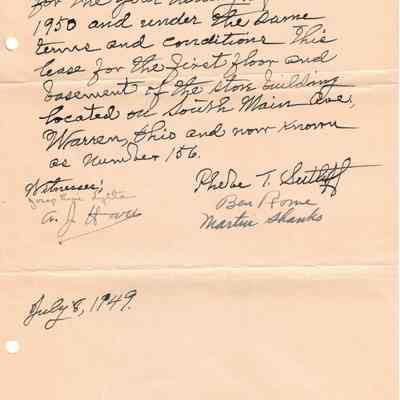 for the year
1950 and under the same
terms and conditions This
lease for the first floor and
basement of the store building
located on South Main Ave,
Warren, Ohio and now known
as number 156.
Witnesses; Phebe T. Sutliff
Ben Rome
A. J. Howe Martin Shanks
July 8, 1949.